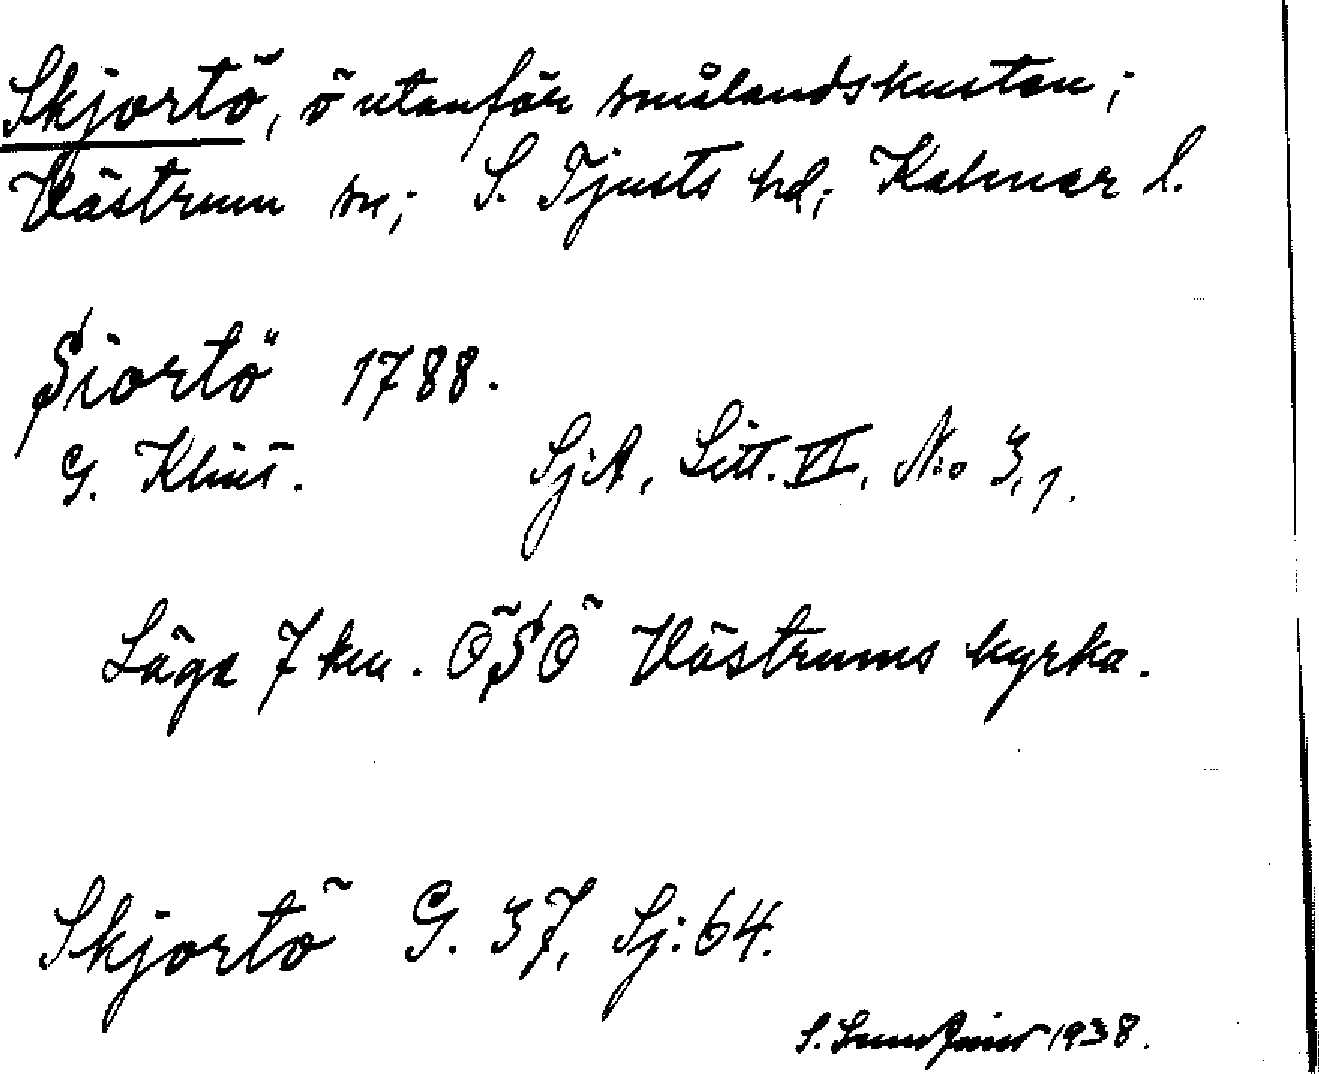 Skjortö, ö utanför smålandskusten;
Västrum sn; S. Tjusts hd; Kalmar l.
Siortö 1788.
G. Klint. SjA, Litt. VI, No 3,1.
Läge 7 km. ÖSÖ Västrums kyrka.
Skjortö G. 37, Sj: 64.
S. 1938.